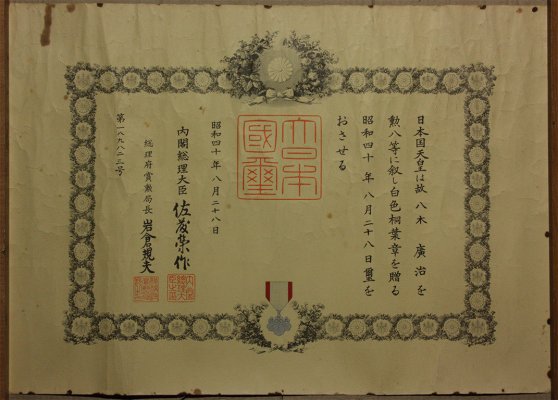 日本国天皇は故八木 廣治を
勲八等に叙し白色桐葉章を贈る
昭和四十年八月二十八日璽を
おさせる
大日本國璽
昭和四十年八月二十八日
内閣総理大臣 佐藤榮作
総理府賞勲局長 岩倉規夫
第一八九八二三号